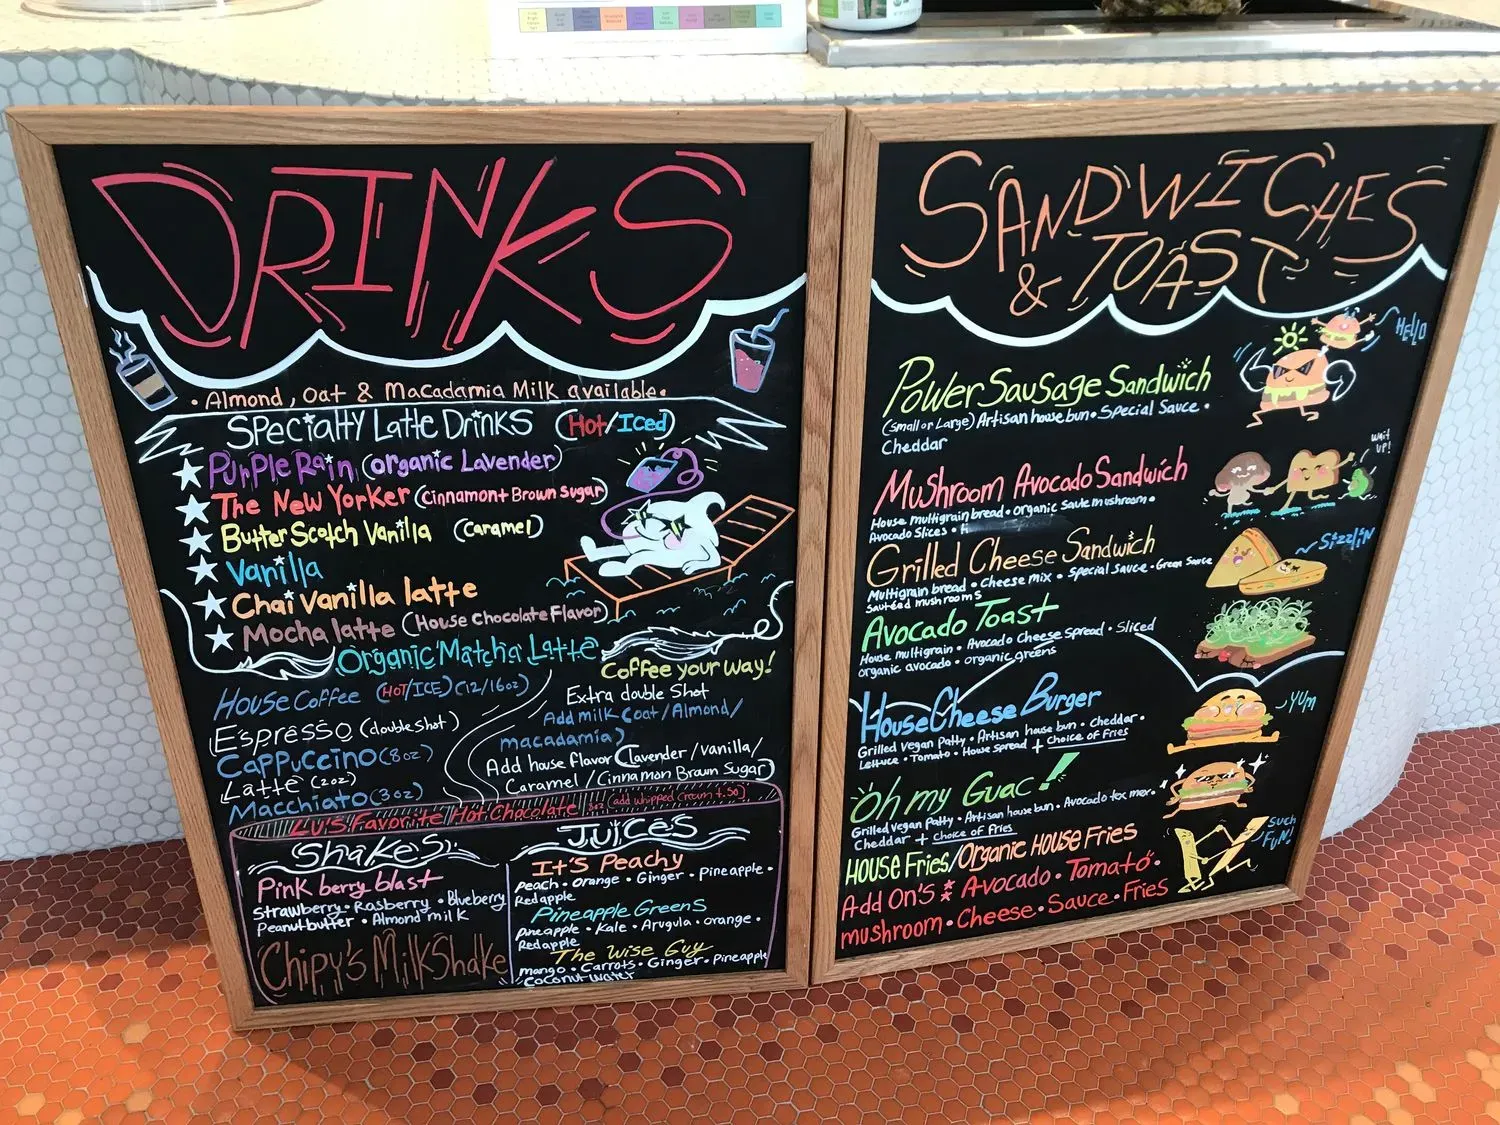 DRINKS
• Almond, Oat & Macadamia Milk available.
Specialty Latte Drinks (Hot/Iced)
Purple Rain (organic Lavender)
The New Yorker (Cinnamon + Brown Sugar)
Butter Scotch Vanilla (Caramel)
Vanilla
Chai Vanilla latte
Mocha latte (House Chocolate Flavor)
Organic Matcha Latte
House Coffee (HOT/ICE) (12/16oz)
Espresso (double shot)
Cappuccino (8oz)
Latte (12oz)
Macchiato (3oz)
Coffee your way!
Extra double Shot
Add milk (oat/Almond/
macadamia)
Add house flavor (Lavender/Vanilla/
Caramel/Cinnamon Braun Sugar)
Lu's Favorite Hot Chocolate 8oz (add whipped cream +.50)
Shakes
Pink berry blast
Strawberry • Rasberry • Blueberry
Peanutbutter • Almond milk
Chipy's MilkShake
Juices
It's Peachy
Peach • Orange • Ginger • Pineapple •
Redapple
Pineapple Greens
Pineapple • Kale • Arugula • orange •
Redapple
The Wise Guy
mango • Carrots • Ginger • Pineapple
Coconut Water
SANDWICHES
& TOAST
HELLO
Power Sausage Sandwich
(Small or Large) Artisan house bun • Special Sauce •
Cheddar
wait
up!
Mushroom Avocado Sandwich
House multigrain bread • organic Saute mushroom •
Avocado Slices •
Grilled Cheese Sandwich
Sizzlin
Multigrain bread • Cheese mix • Special sauce • Green Sauce
Sautéed mushrooms
Avocado Toast
House multigrain • Avocado Cheese Spread • Sliced
organic avocado • organic greens
House Cheese Burger
YUM
Grilled Vegan Patty • Artisan house bun • Cheddar •
Lettuce • Tomato • House Spread + Choice of Fries
Oh my Guac!
Grilled Vegan Patty • Artisan house bun • Avocado tex mex •
Cheddar + Choice of Fries
Such
Fun!
House Fries/Organic House Fries
Add On's * Avocado • Tomato •
mushroom • Cheese • Sauce • Fries